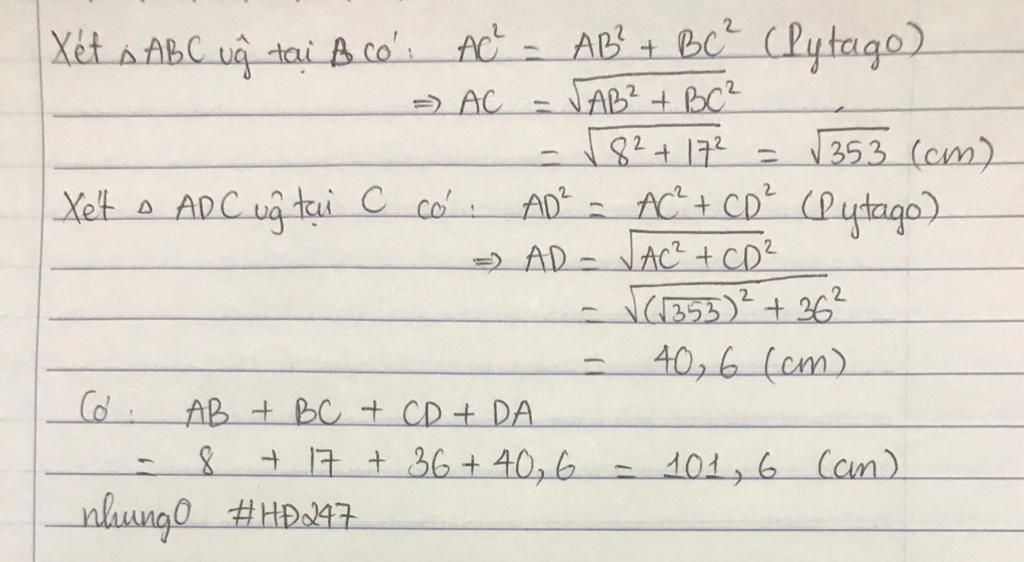 Xét △ ABC vg̃ tại B có: AC² = AB² + BC² (Pytago)
⇒ AC = √AB² + BC²
= √8² + 17² = √353 (cm)
Xét △ ADC vg̃ tại C có: AD² = AC² + CD² (Pytago)
⇒ AD = √AC² + CD²
= √(√353)² + 36²
= 40,6 (cm)
Có: AB + BC + CD + DA
= 8 + 17 + 36 + 40,6 = 101,6 (cm)
nhung0 #HĐ247